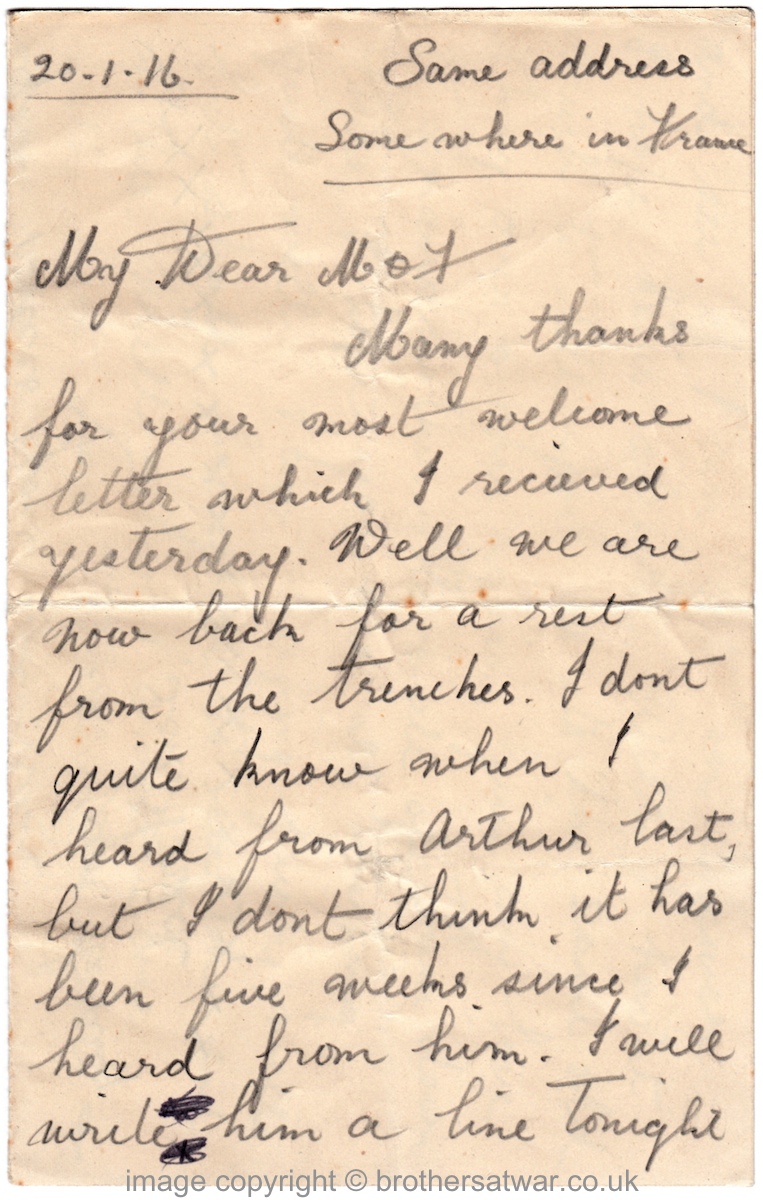 20-1-16. Same address
Some where in France
My Dear M & F
Many thanks
for your most welcome
letter which I recieved
yesterday. Well we are
now back for a rest
from the trenches. I dont
quite know when I
heard from Arthur last,
but I dont think it has
been five weeks since I
heard from him. I will
write him a line tonight
image copyright © brothersatwar.co.uk